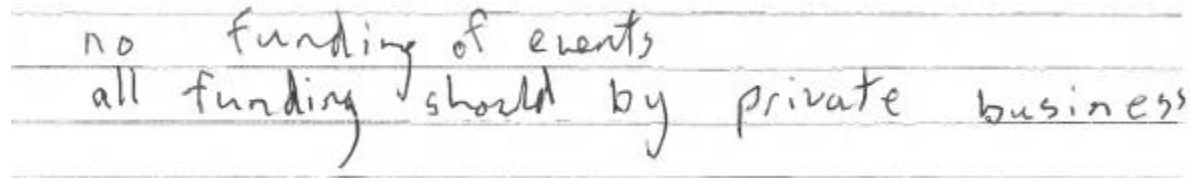 no funding of events
all funding should by private business